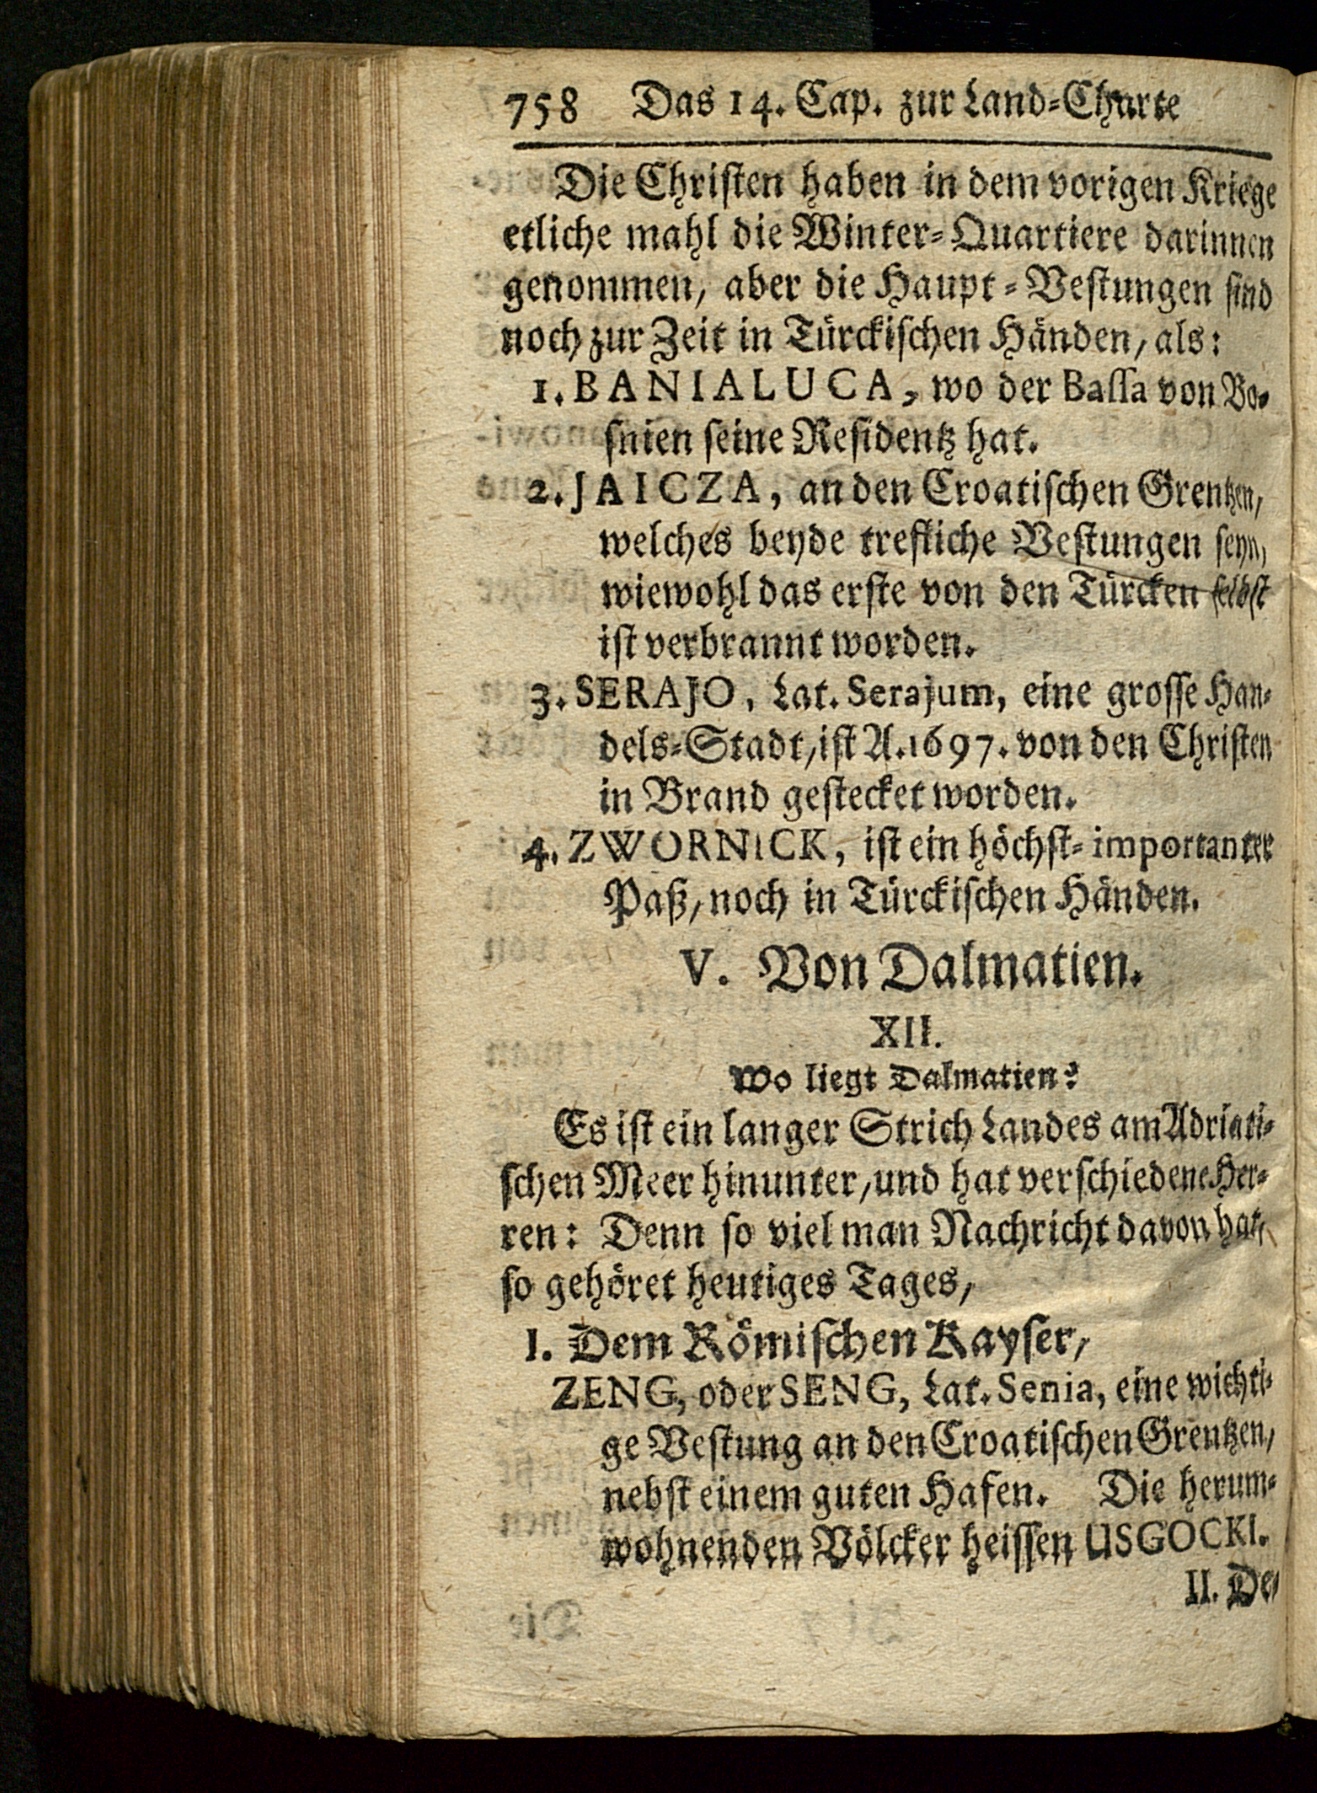 758 Das 14. Cap. zur Land-Charte
Die Christen haben in dem vorigen Kriege
etliche mahl die Winter-Quartiere darinnen
genommen, aber die Haupt-Vestungen sind
noch zur Zeit in Türckischen Händen, als:
1. BANIALUCA, wo der Bassa von Bo-
snien seine Residentz hat.
2. JAICZA, an den Croatischen Grentzen,
welches beyde trefliche Vestungen seyn,
wiewohl das erste von den Türcken selbst
ist verbrannt worden.
3. SERAJO, Lat. Serajum, eine grosse Han-
dels-Stadt, ist A. 1697. von den Christen
in Brand gestecket worden.
4. ZWORNICK, ist ein höchst-importanter
Paß, noch in Türckischen Händen.
V. Von Dalmatien.
XII.
Wo liegt Dalmatien?
Es ist ein langer Strich Landes am Adriati-
schen Meer hinunter, und hat verschiedene Her-
ren: Denn so viel man Nachricht davon hat,
so gehöret heutiges Tages,
I. Dem Römischen Kayser,
ZENG, oder SENG, Lat. Senia, eine wichti-
ge Vestung an den Croatischen Grentzen,
nebst einem guten Hafen. Die herum-
wohnenden Völcker heissen USGOCKI.
II. De-